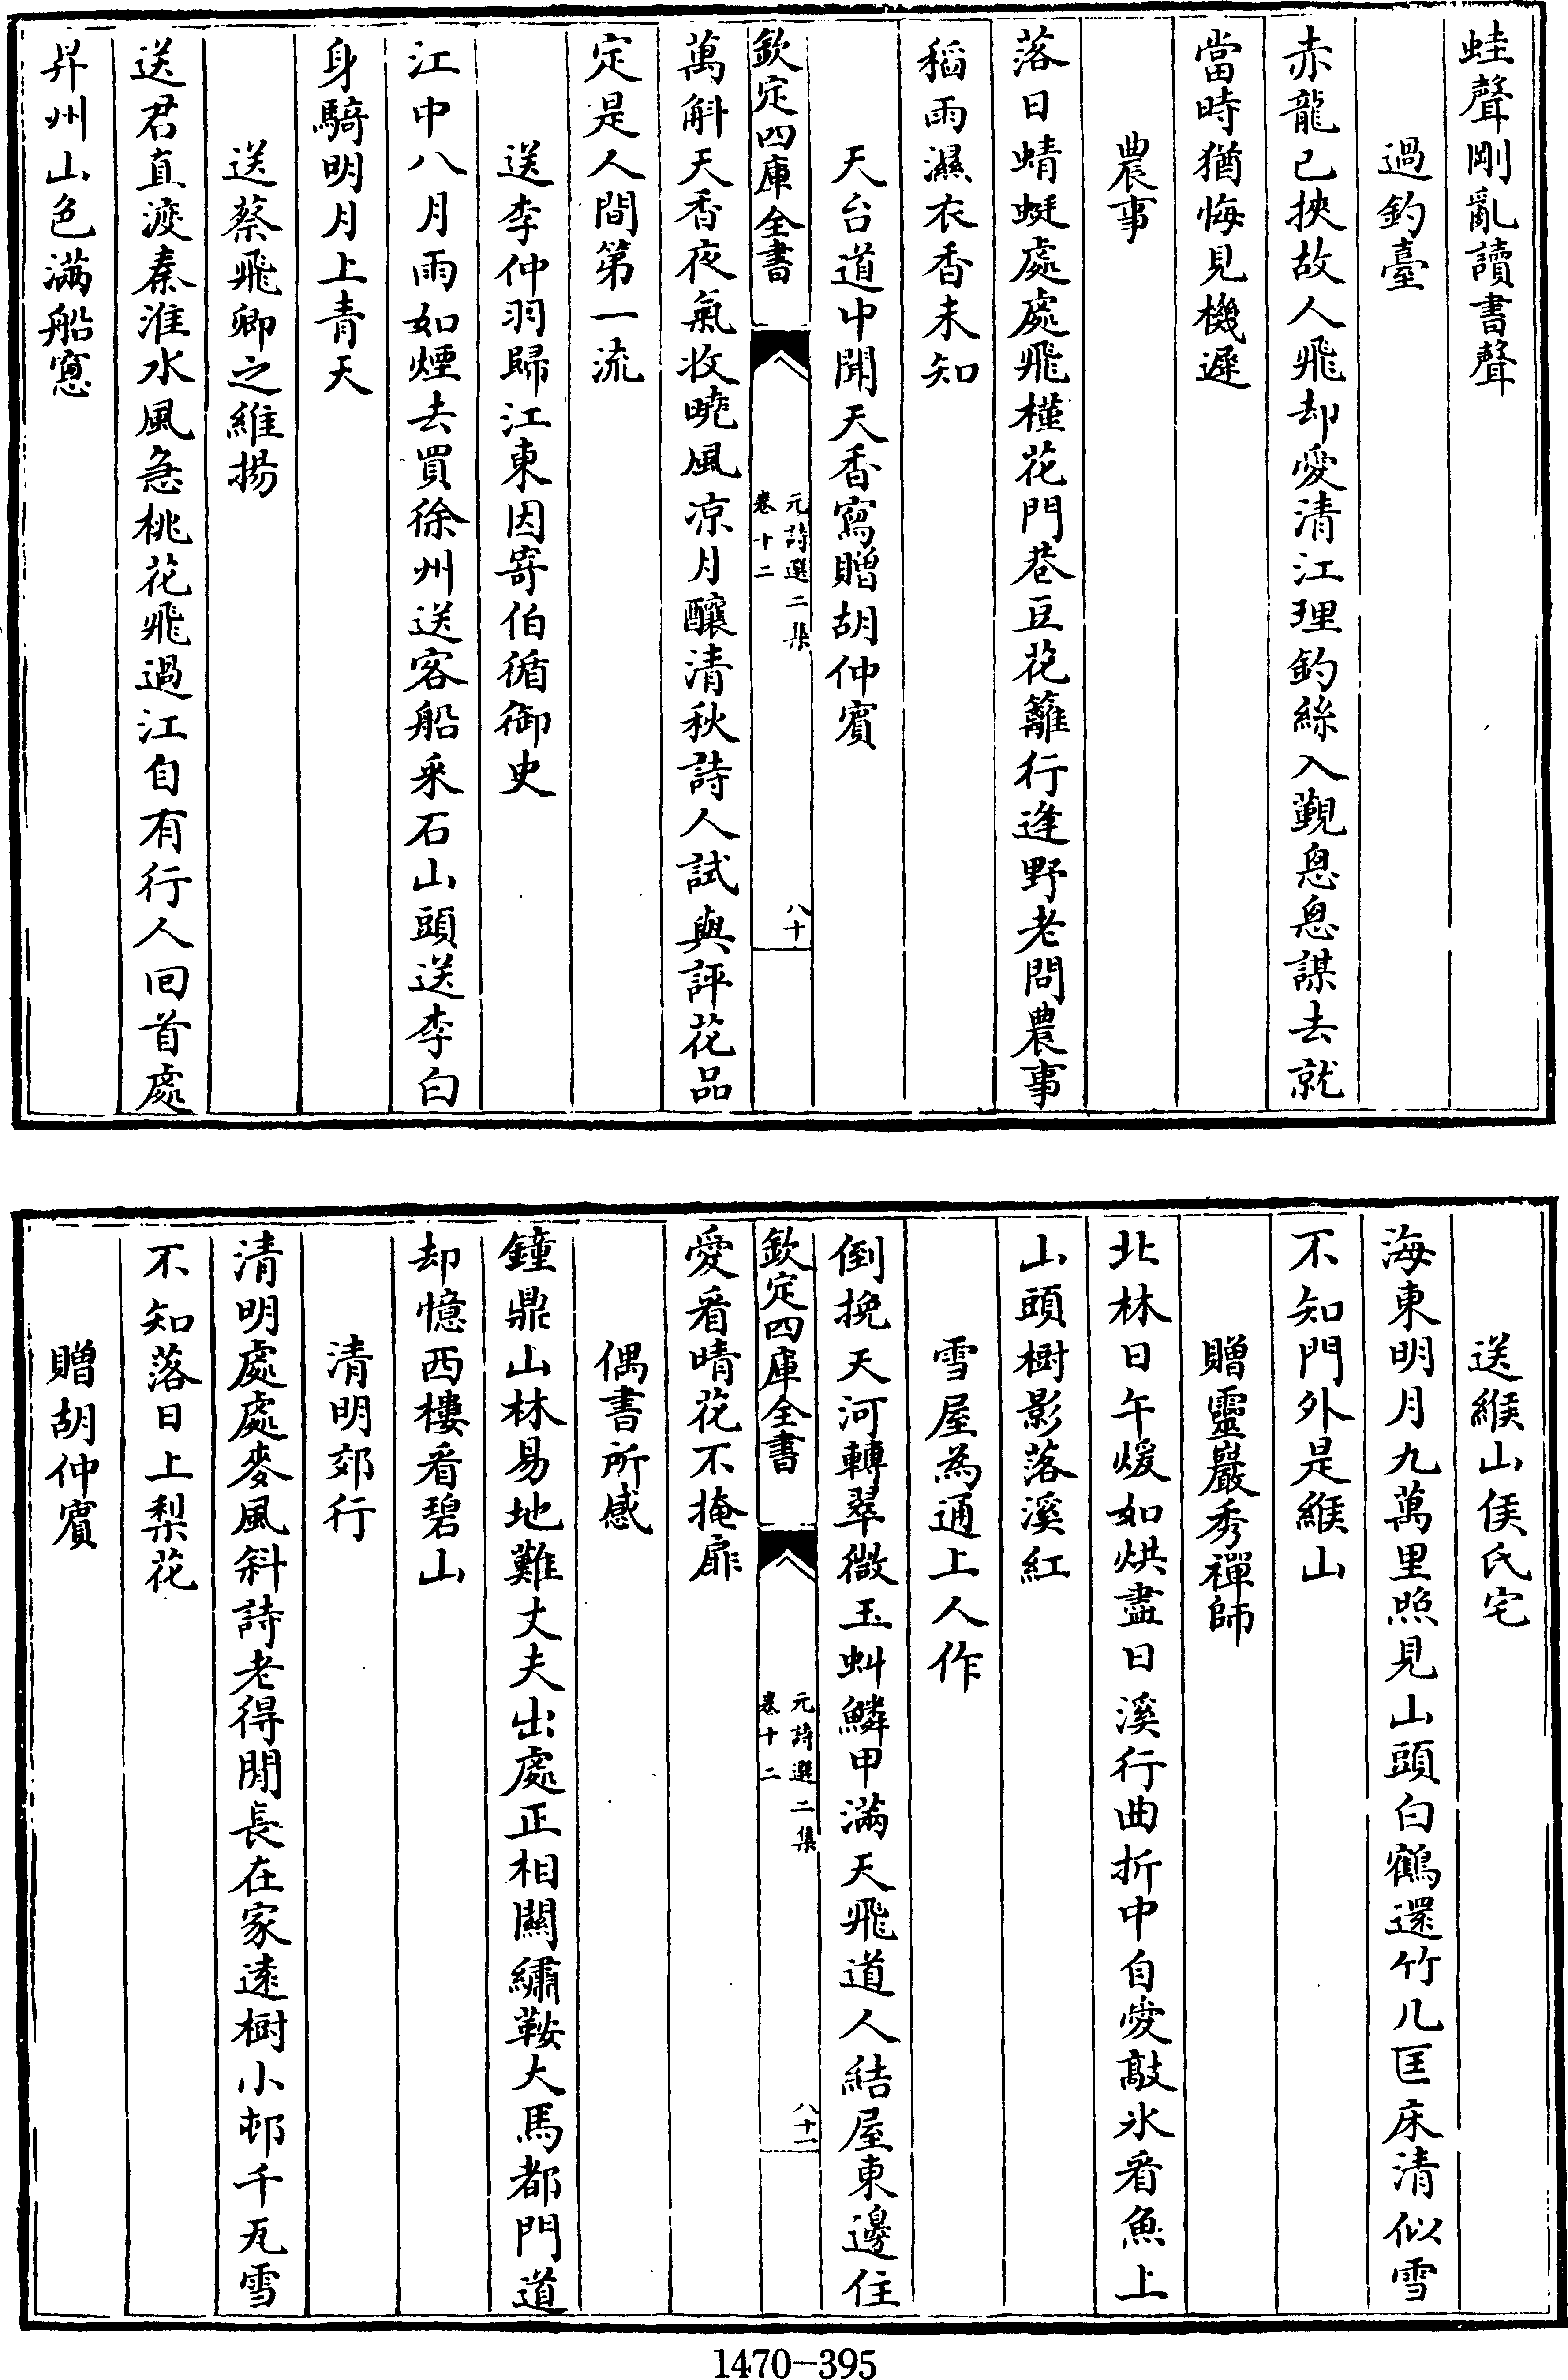 蛙聲剛亂讀書聲
過釣臺
赤龍已挾故人飛却愛清江理釣絲入覲悤悤謀去就
當時猶悔見機遲
農事
落日蜻蜓處處飛槿花門巷豆花籬行逢野老問農事
稻雨濕衣香未知
天台道中聞天香寫贈胡仲賓
欽定四庫全書
元詩選二集
卷十二
八十
萬斛天香夜氣收曉風凉月釀清秋詩人試與評花品
定是人間第一流
送李仲羽歸江東因寄伯循御史
江中八月雨如煙去買徐州送客船采石山頭送李白
身騎明月上青天
送蔡飛卿之維揚
送君直渡秦淮水風急桃花飛過江自有行人回首處
昇州山色滿船窻
送緱山侯氏宅
海東明月九萬里照見山頭白鶴還竹几匡床清似雪
不知門外是緱山
贈靈巖秀禪師
北林日午煖如烘盡日溪行曲折中自愛敲氷看魚上
山頭樹影落溪紅
雪屋為通上人作
倒挽天河轉翠微玉虯鱗甲滿天飛道人結屋東邊住
欽定四庫全書
元詩選二集
卷十二
八十一
愛看晴花不掩扉
偶書所感
鐘鼎山林易地難丈夫出處正相關繡鞍大馬都門道
却憶西樓看碧山
清明郊行
清明處處麥風斜詩老得閒長在家遠樹小邨千瓦雪
不知落日上梨花
贈胡仲賓
1470-395